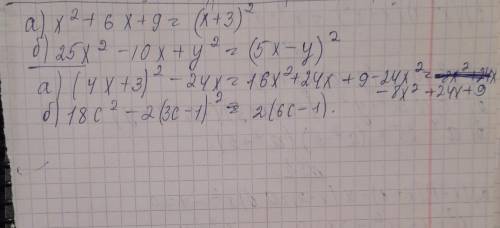 а) x² + 6x + 9 = (x+3)²
б) 25x² - 10x + y² = (5x - y)²
а) (4x+3)² - 24x = 16x² + 24x + 9 - 24x² =
- 8x² + 24x + 9
б) 18c² - 2(3c-1)² = 2(6c-1).